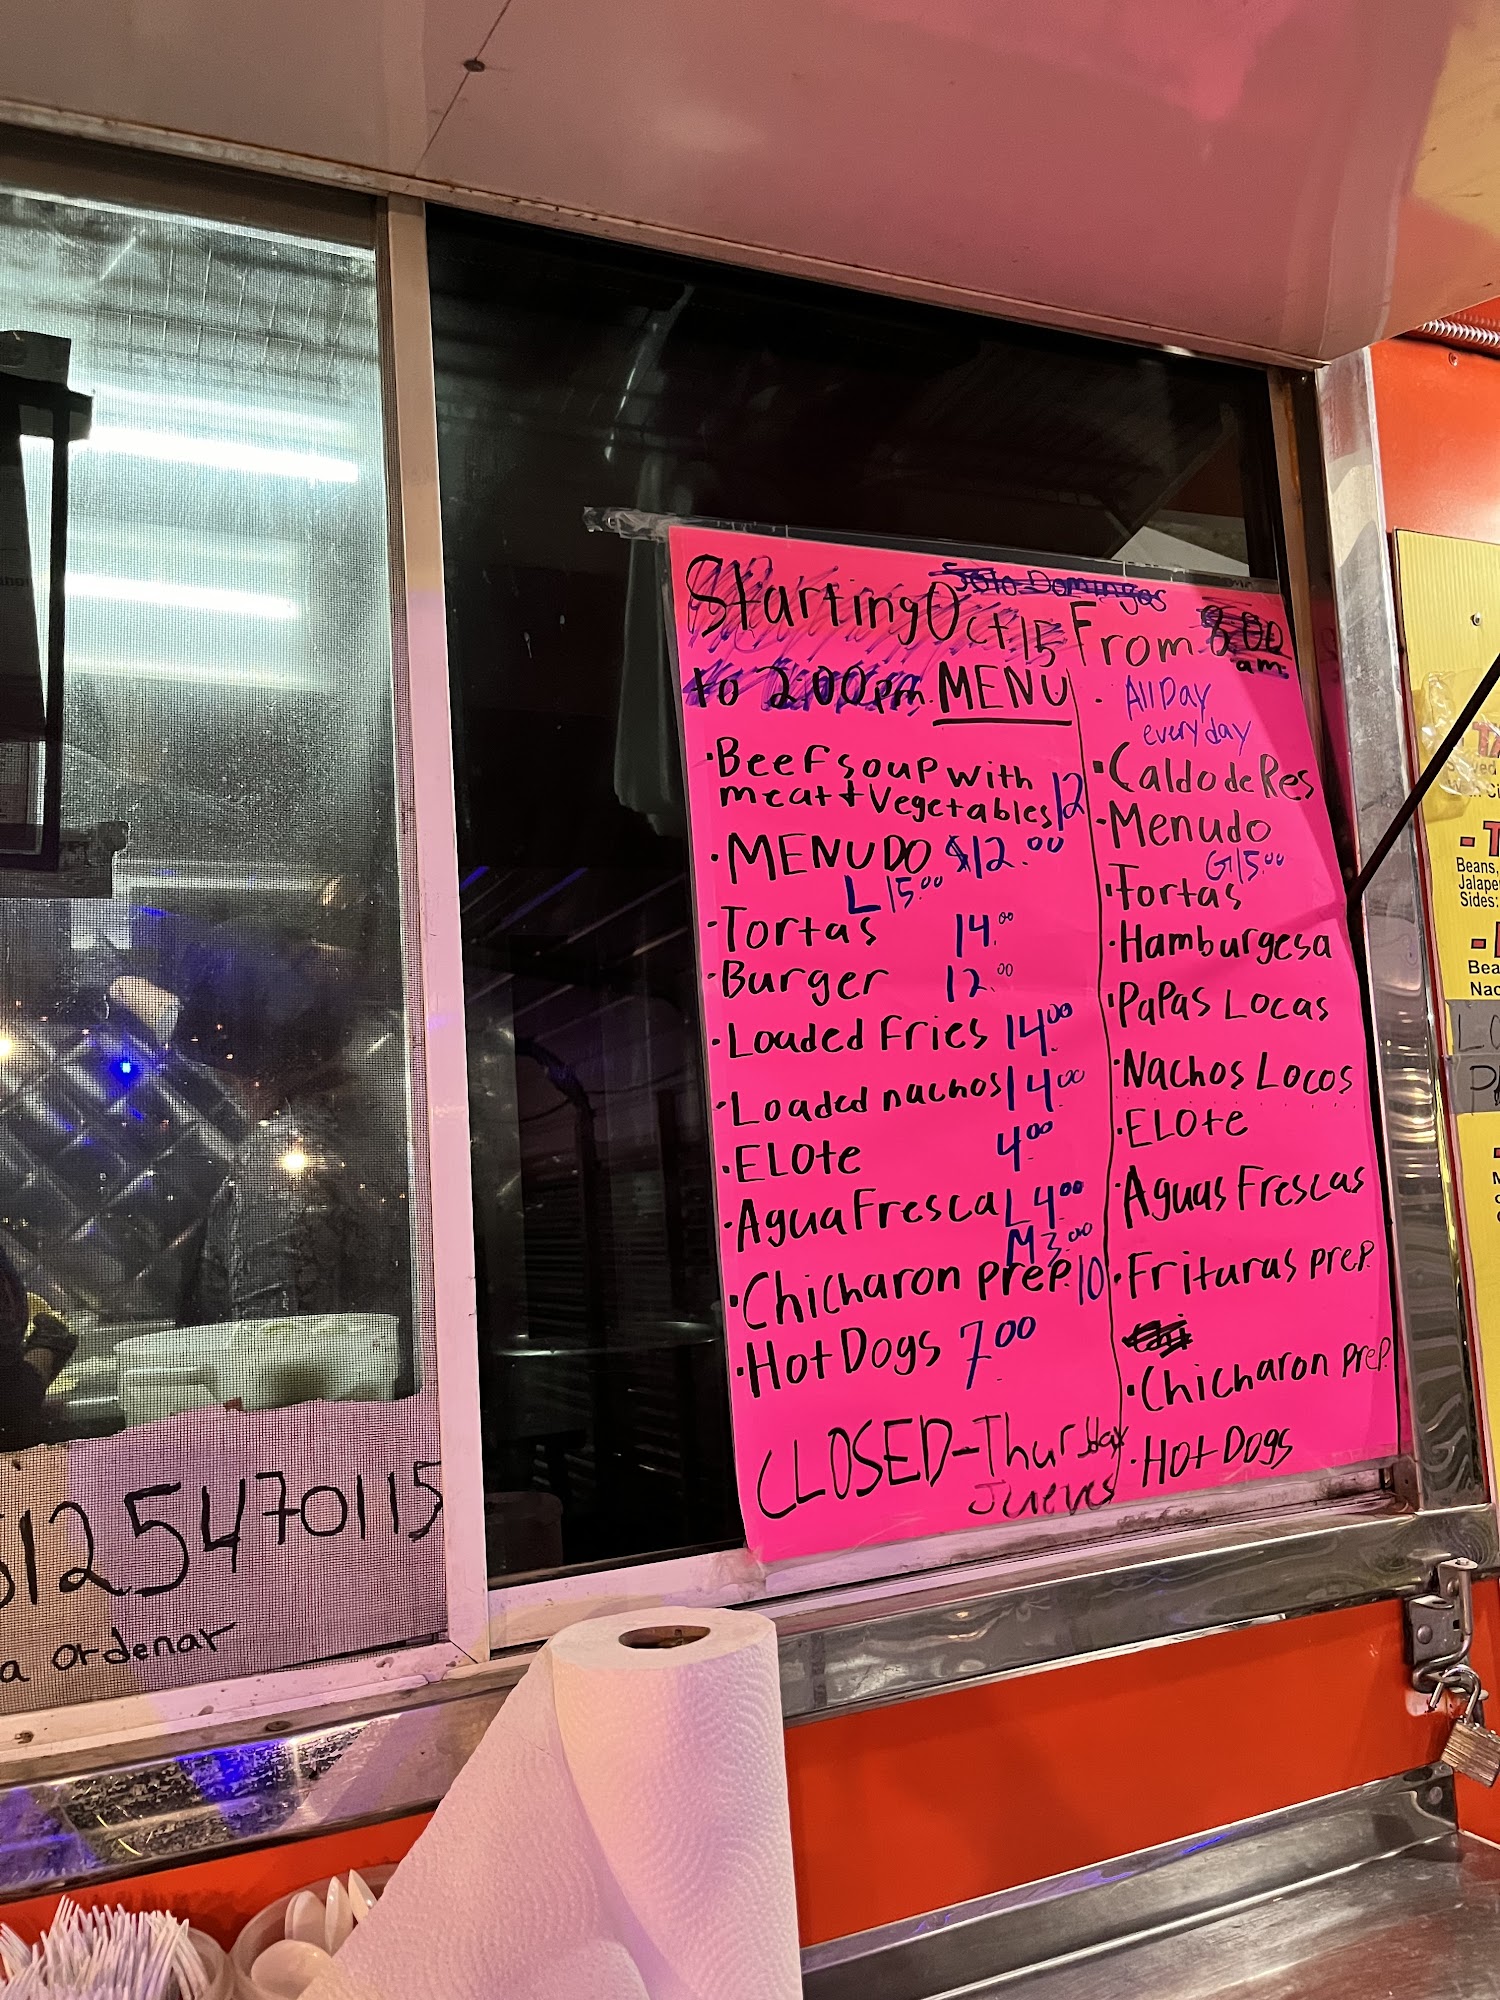 Solo Domingos
Starting Oct 15 From 8:00
am
to 2:00pm MENU
· All Day
every day
·Beef soup with
meat + Vegetables 12
·MENUDO $12.00
L 15.00
·Tortas 14.00
·Burger 12.00
·Loaded Fries 14.00
·Loaded nachos 14.00
·ELOte 4.00
·Agua Fresca L 4.00
M 3.00
·Chicharon prep. 10
·Hot Dogs 7.00
CLOSED-Thursday
Jueves
·Caldo de Res
·Menudo
G 15.00
·Tortas
·Hamburgesa
·PaPas Locas
·Nachos Locos
·ELOte
·Aguas Frescas
·Frituras prep.
·Chicharon prep.
·Hot Dogs
5125470115
a ordenar
Beans,
Jalape
Sides:
Bea
Nac